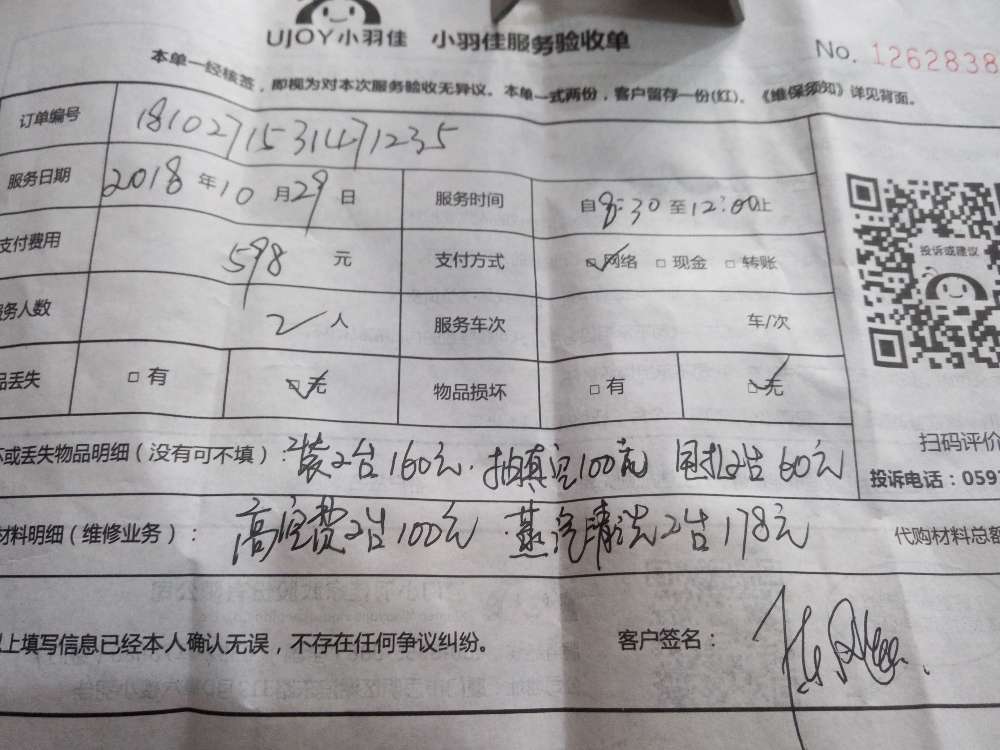 UJOY小羽佳 小羽佳服务验收单
No. 1262838
本单一经核签，即视为对本次服务验收无异议。本单一式两份，客户留存一份(红)。《维保须知》详见背面。
订单编号 1810271531471235
服务日期 2018年10月29日 服务时间 自8:30至12:00止
支付费用 598元 支付方式 ☑网络 □现金 □转账
务人数 2人 服务车次 车/次
品丢失 □有 ☑无 物品损坏 □有 ☑无
投诉或建议
扫码评价
坏或丢失物品明细（没有可不填）: 装2台160元. 抽真空100元 2台60元
投诉电话：059
材料明细（维修业务）: 高空费2台100元 蒸汽清洗2台178元
代购材料总额
以上填写信息已经本人确认无误，不存在任何争议纠纷。 客户签名：